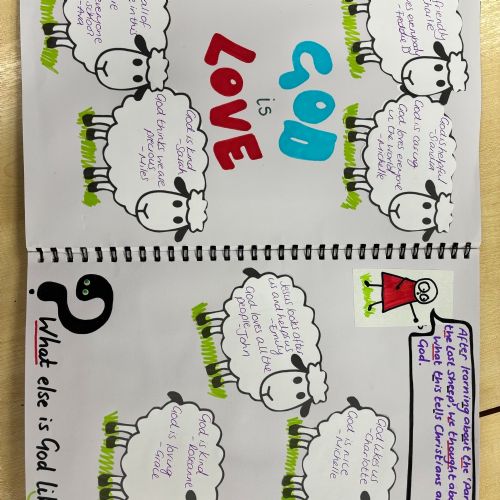 all of
in this
everyone
school?
-Ava
friendly
-Charlie
loves everybody
-Freddie D
GOD
is
LOVE
God is kind
-Sarah
God thinks we are
precious
-Miles
God is helpful
God is caring
God loves everyone
in the world!
-Michelle
Jesus looks after
us and helps us
-Emily
God loves all the
people-John
After learning about the
the lost sheep', we thought
What this tells Christians
God.
God is kind
-Roxanne
God is loving
God likes us
-Charlotte
God is nice
-Michelle
? What else is God